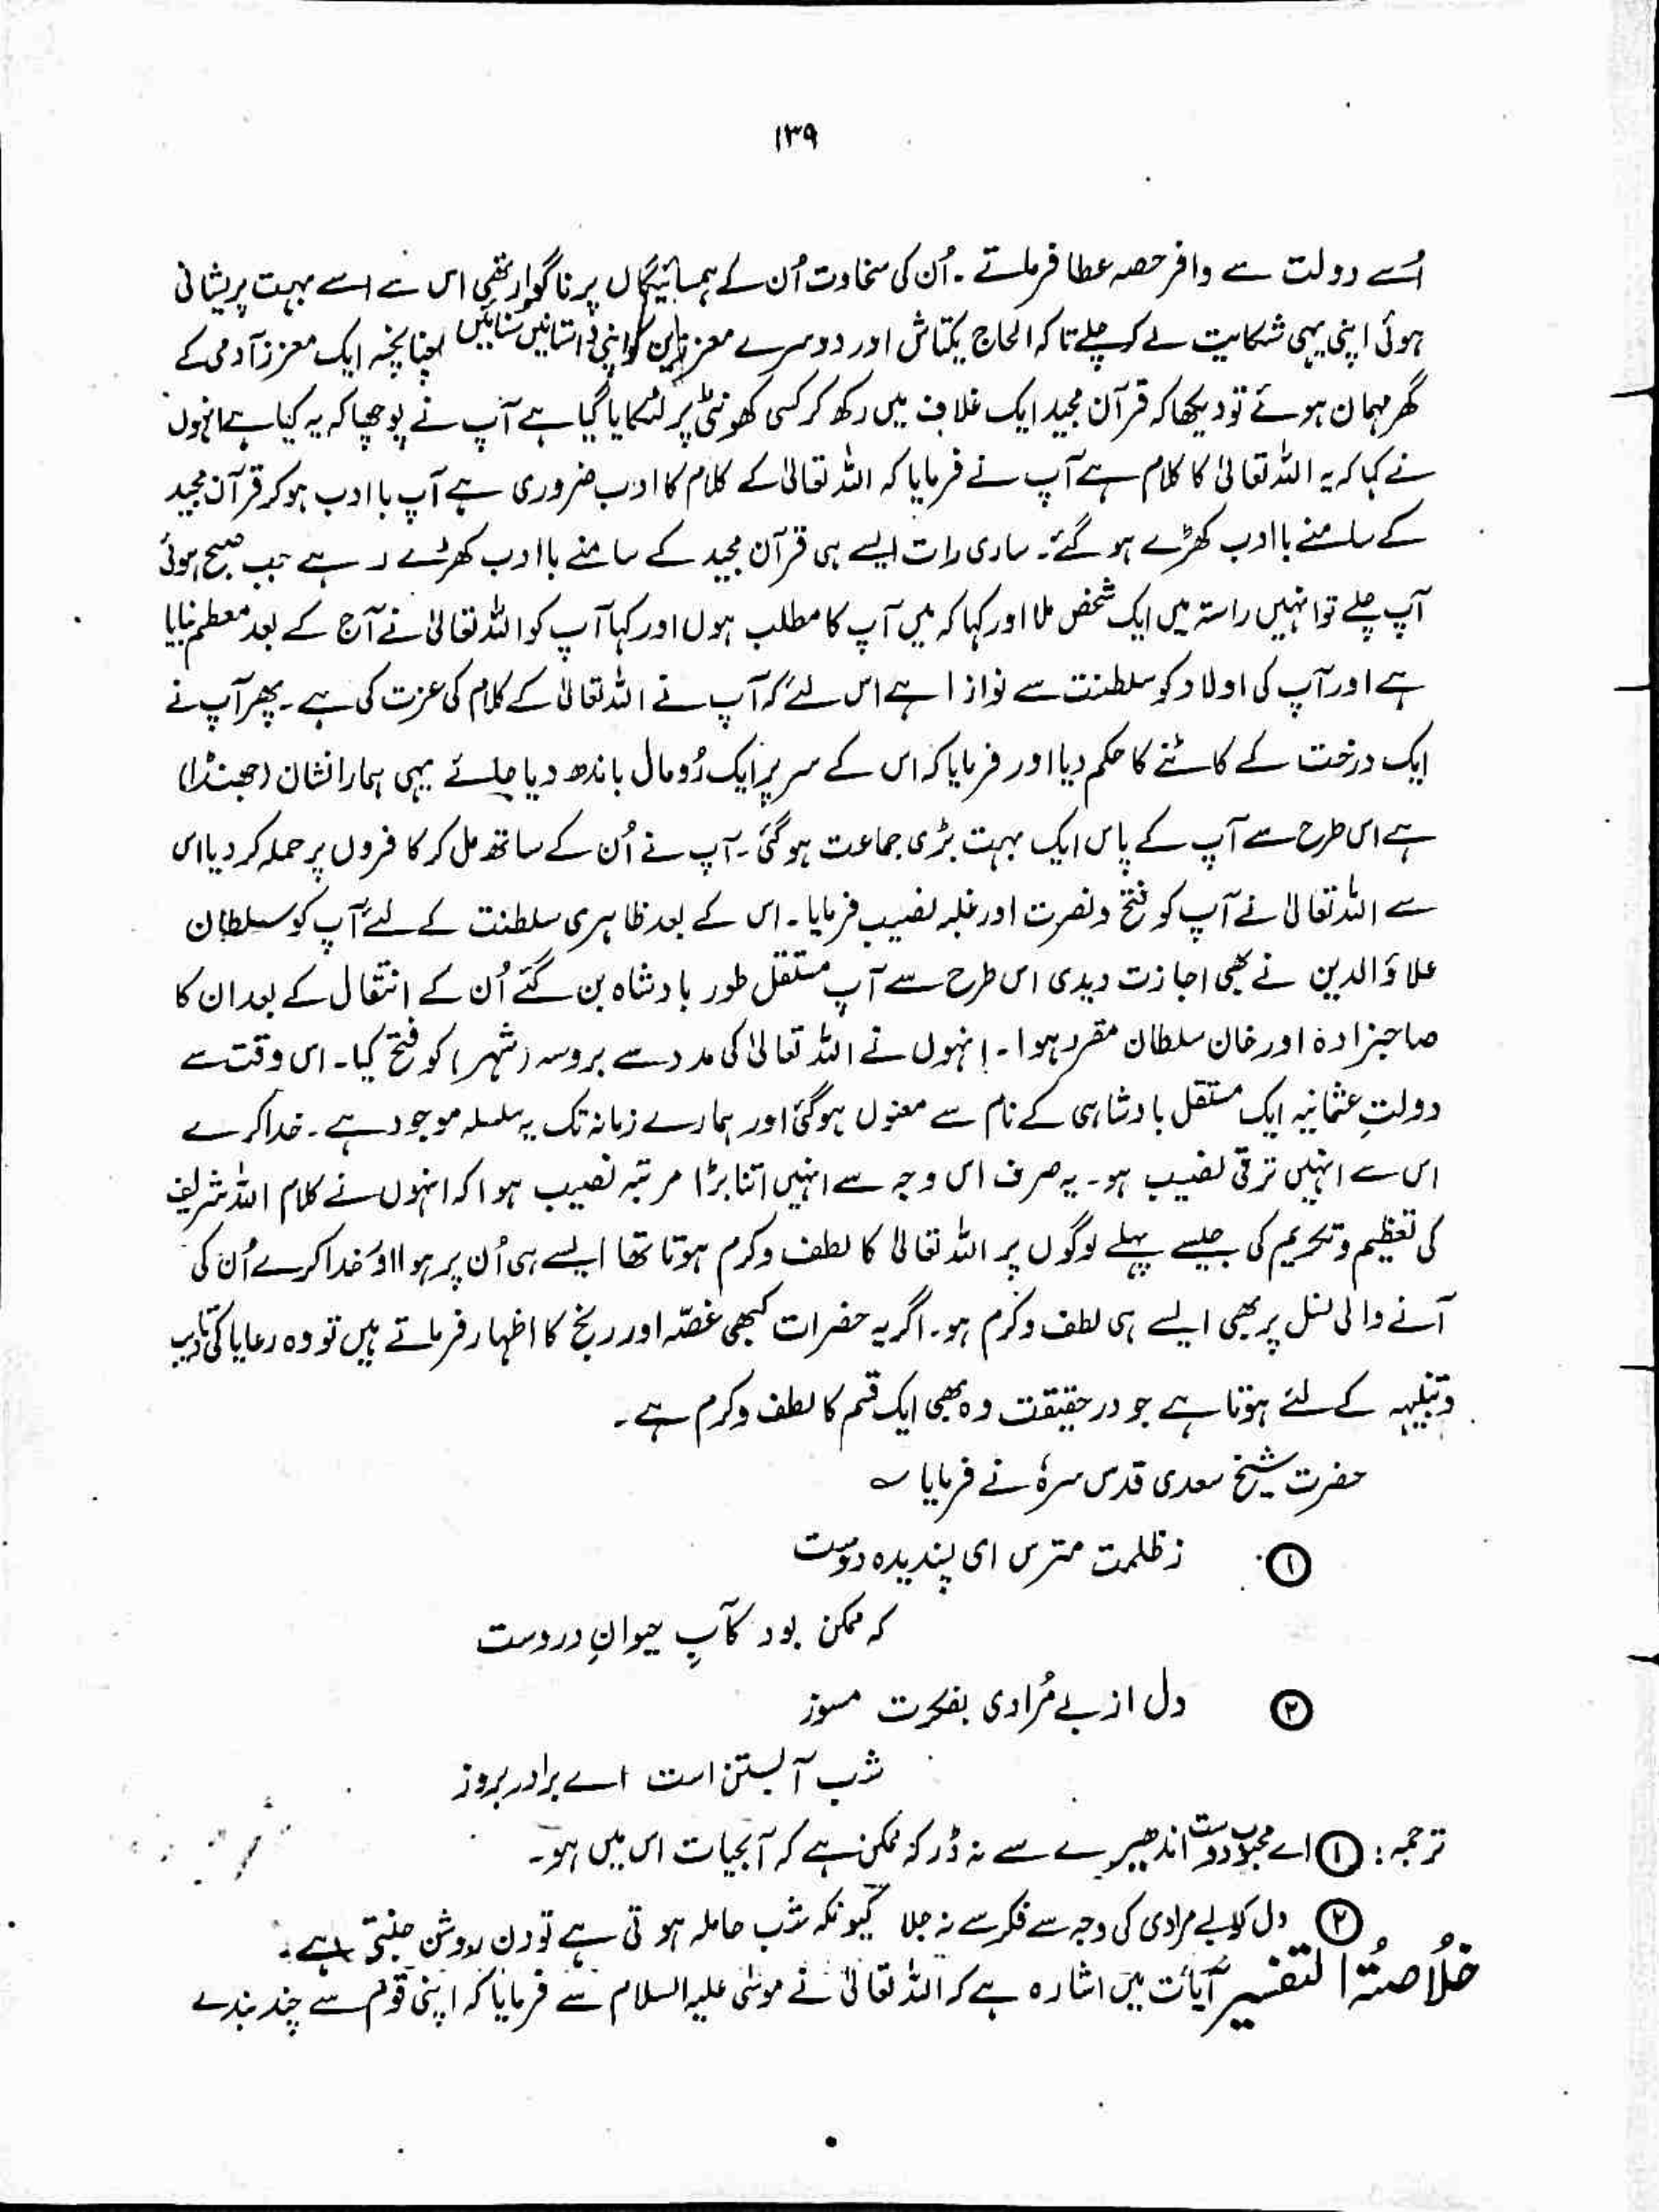 ۱۳۹
اُسے دولت سے وافر حصہ عطا فرماتے ۔ اُن کی سخاوت اُن کے ہمسائیگاں پر ناگوار تھی اس سے اسے بہت پریشانی
ہوئی اپنی یہی شکایت لے کر چلے تاکہ الحاج یکتاش اور دوسرے معززین کو اپنی داستانیں سنائیں چنانچہ ایک معزز آدمی کے
گھر مہمان ہوئے تو دیکھا کہ قرآن مجید ایک غلاف میں رکھ کر کسی کھونٹی پر لٹکایا گیا ہے آپ نے پوچھا کہ یہ کیا ہے انہوں
نے کہا کہ یہ اللہ تعالیٰ کا کلام ہے آپ نے فرمایا کہ اللہ تعالیٰ کے کلام کا ادب ضروری ہے آپ با ادب ہو کر قرآن مجید
کے سامنے با ادب کھڑے ہو گئے۔ ساری رات ایسے ہی قرآن مجید کے سامنے با ادب کھڑے رہے جب صبح ہوئی
آپ چلے تو انہیں راستہ میں ایک شخص ملا اور کہا کہ میں آپ کا مطلب ہوں اور کہا آپ کو اللہ تعالیٰ نے آج کے بعد معظم بنایا
ہے اور آپ کی اولاد کو سلطنت سے نوازا ہے اس لئے کہ آپ نے اللہ تعالیٰ کے کلام کی عزت کی ہے ۔ پھر آپ نے
ایک درخت کے کاٹنے کا حکم دیا اور فرمایا کہ اس کے سر پر ایک رُومال باندھ دیا جائے یہی ہمارا نشان (جھنڈا)
ہے اس طرح سے آپ کے پاس ایک بہت بڑی جماعت ہو گئی ۔ آپ نے اُن کے ساتھ مل کر کافروں پر حملہ کر دیا اس
سے اللہ تعالیٰ نے آپ کو فتح و نصرت اور غلبہ نصیب فرمایا ۔ اس کے بعد ظاہری سلطنت کے لئے آپ کو سلطان
علاؤ الدین نے بھی اجازت دیدی اس طرح سے آپ مستقل طور بادشاہ بن گئے اُن کے انتقال کے بعد ان کا
صاحبزادہ اور خان سلطان مقرر ہوا ۔ انہوں نے اللہ تعالیٰ کی مدد سے بروسہ (شہر) کو فتح کیا ۔ اس وقت سے
دولتِ عثمانیہ ایک مستقل بادشاہی کے نام سے معنوں ہو گئی اور ہمارے زمانہ تک یہ سلسلہ موجود ہے ۔ خدا کرے
اس سے انہیں ترقی نصیب ہو ۔ یہ صرف اس وجہ سے انہیں اتنا بڑا مرتبہ نصیب ہوا کہ انہوں نے کلام اللہ شریف
کی تعظیم و تکریم کی جیسے پہلے لوگوں پر اللہ تعالیٰ کا لطف و کرم ہوتا تھا ایسے ہی اُن پر ہوا اور خدا کرے اُن کی
آنے والی نسل پر بھی ایسے ہی لطف و کرم ہو ۔ اگر یہ حضرات کبھی غصّہ اور رنج کا اظہار فرماتے ہیں تو وہ رعایا کی تادیب
و تنبیہہ کے لئے ہوتا ہے جو درحقیقت وہ بھی ایک قسم کا لطف و کرم ہے ۔
حضرت شیخ سعدی قدس سرہٗ نے فرمایا ؎
① ز ظلمت مترس ای پسندیدہ دوست
کہ ممکن بود کآبِ حیوانِ دروست
② دل از بے مُرادی بفکرت مسوز
شب آبستن است اے برادر بروز
ترجمہ : ① اے محبوب دوست اندھیرے سے نہ ڈر کہ ممکن ہے کہ آبحیات اس میں ہو ۔
② دل کو بے مرادی کی وجہ سے فکر سے نہ جلا کیونکہ شب حاملہ ہوتی ہے تو دن روشن جنتی ہے ۔
خُلاصتُہ التفسیر آیات میں اشارہ ہے کہ اللہ تعالیٰ نے موسٰی علیہ السلام سے فرمایا کہ اپنی قوم سے چند بندے